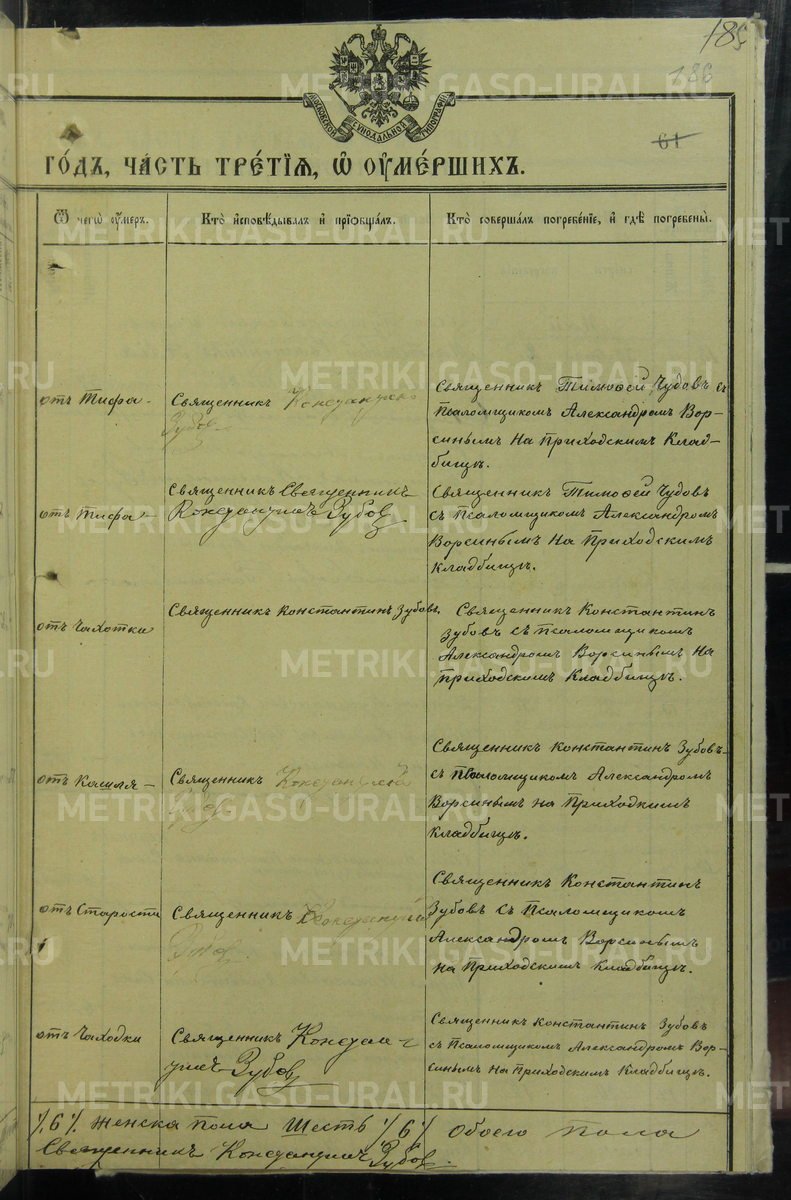 185
186
61
МОСКОВСКОЙ СѴНОДАЛЬНОЙ ТИПОГРАФІИ
METRIKI.GASO-URAL.RU
го́дъ, ча́сть тре́тїѧ, ѡ҆ ᲂу҆ме́ршихъ.
Ѿ чегѡ̀ ᲂу҆́меръ.
Кто̀ и҆сповѣ́дывалъ и҆ прїѡбща́лъ.
Кто̀ соверша́лъ погребе́нїе, и҆ гдѣ̀ погребены̀.
отъ Тифа
Священникъ Константинъ
Зубов
Священникъ Тимоѳей Чудовъ съ
Псаломщикомъ Александромъ Вор-
синымъ На Приходскимъ Клад-
бищъ.
отъ Тифа
Священникъ Священникъ
Константинъ Зубов
Священникъ Тимоѳей Чудовъ
съ Псаломщикомъ Александромъ
Ворсинымъ На Приходскимъ
Кладбищъ.
отъ Чахотки
Священникъ Константинъ Зубовъ.
Священникъ Константинъ
Зубовъ съ псаломщикомъ
Александромъ Ворсинымъ На
Приходскимъ Кладбищъ.
отъ Кашля
Священникъ Константин
Зубов
Священникъ Константинъ Зубовъ
съ Псаломщикомъ Александромъ
Ворсинымъ на Приходкимъ
Кладбищъ.
отъ Старости
Священникъ Константин
Зубов
Священникъ Константинъ
Зубовъ съ Псаломщикомъ
Александромъ Ворсинымъ
на Приходскимъ Кладбищъ.
отъ Чаходки
Священникъ Констан-
тинъ Зубов
Священникъ Константинъ Зубовъ
съ Псаломщикомъ Александромъ Вор-
синымъ На Приходскимъ Кладбищъ.
٪6٪ женска пола Шесть ٪6٪ Обоего пола
Священникъ Константинъ Зубов